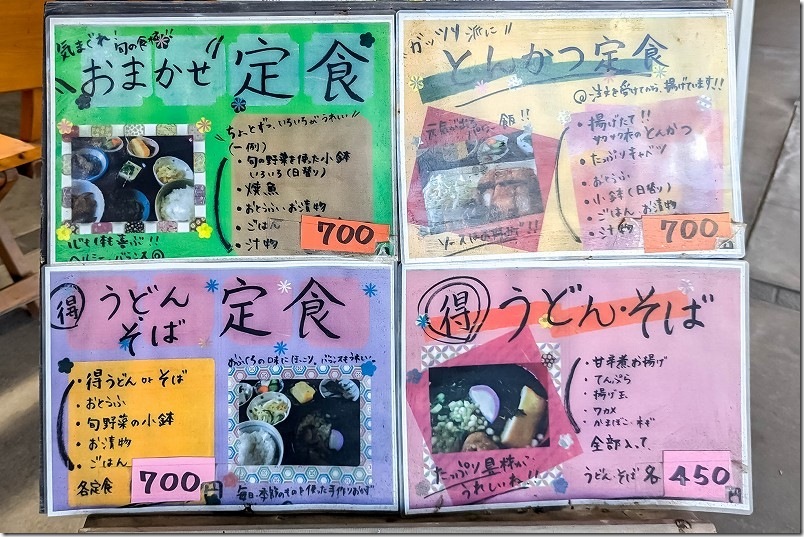 気まぐれ!旬の食材
おまかせ定食
ちょとずつ、いろいろがうれしい
(一例)
・旬の野菜を使った小鉢
いろいろ(日替り)
・焼魚
・おとうふ・お漬物
・ごはん
・汁物
700円
心も体も喜ぶ!!
ヘルシー・バランス◎
"ガッツリ派に"
とんかつ定食
◎注文を受けてから、揚げています!!
飯!!
・揚げたて!!
サクサク衣のとんかつ
・たっぷりキャベツ
・おとうふ
・小鉢(日替り)
・ごはん、お漬物
・汁物
700円
得
うどん
そば
定食
おふくろの味にほっこり。バランスもうれしい
・得うどんorそば
・おとうふ
・旬野菜の小鉢
・お漬物
・ごはん
各定食
700円
毎日・季節のものを使った手作りおかず
得
うどん・そば
・甘辛煮お揚げ
・てんぷら
・揚げ玉
・ワカメ
・かまぼこ・ネギ
全部入って
うどん・そば各
450円
たっぷり具材が
うれしいね!!